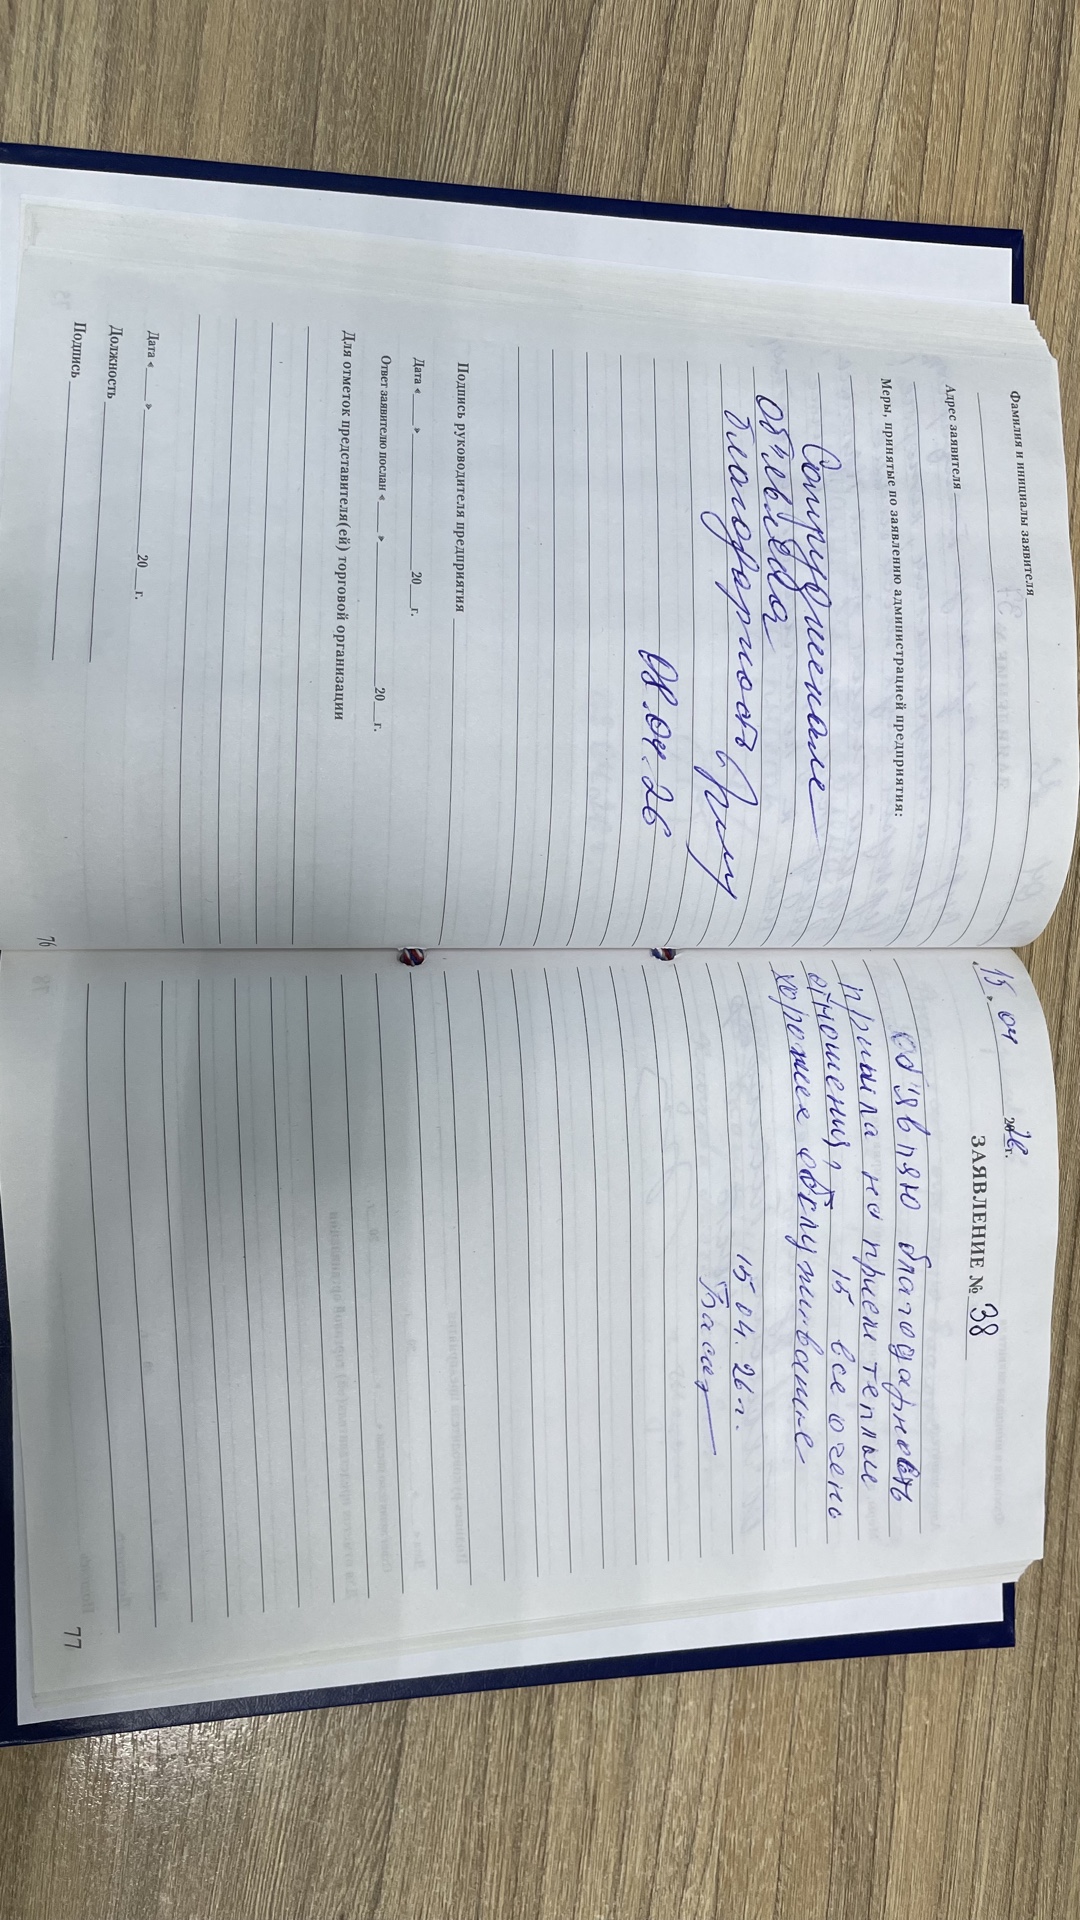 Фамилия и инициалы заявителя
Адрес заявителя
Меры, принятые по заявлению администрацией предприятия:
Сотруднепале
объевлена
благодарность
08.04.26
Подпись руководителя предприятия
Дата « » 20 г.
Ответ заявителю послан « » 20 г.
Для отметок представителя(ей) торговой организации
Дата « » 20 г.
Должность
Подпись
76
15 04 2026 г.
ЗАЯВЛЕНИЕ № 38
Об'явпяю благодарность
пришла на прием теплые
отношения, 15 все очень
хорошее обслуживание
15 04. 26 г.
77